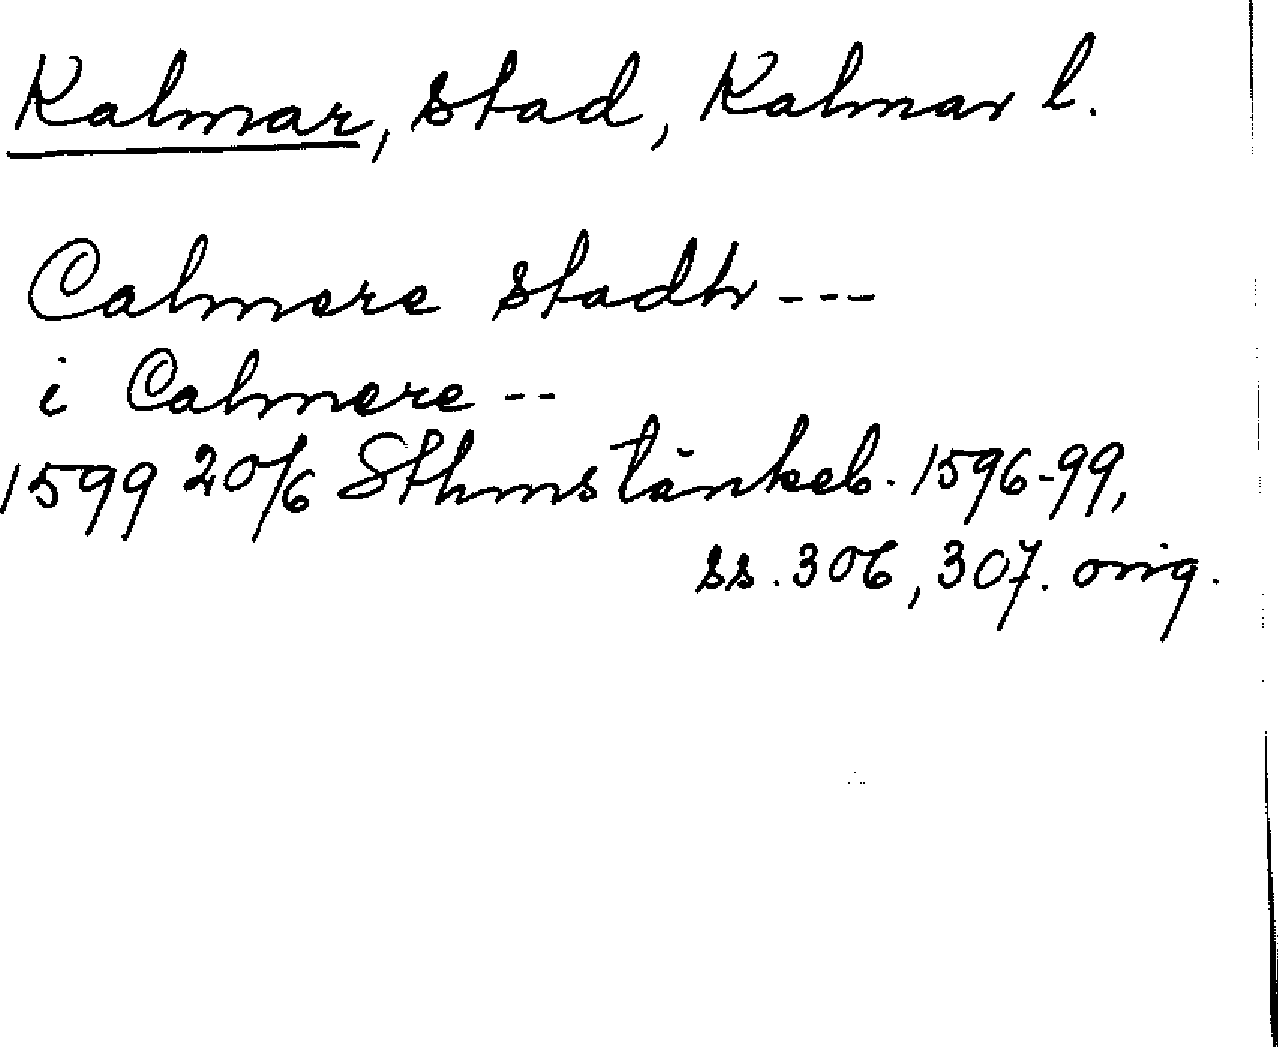 Kalmar, stad, Kalmar l.
Calmere stadh ---
i Calmere --
1599 20/6 Sthms tänkeb. 1596-99,
ss. 306, 307. orig.